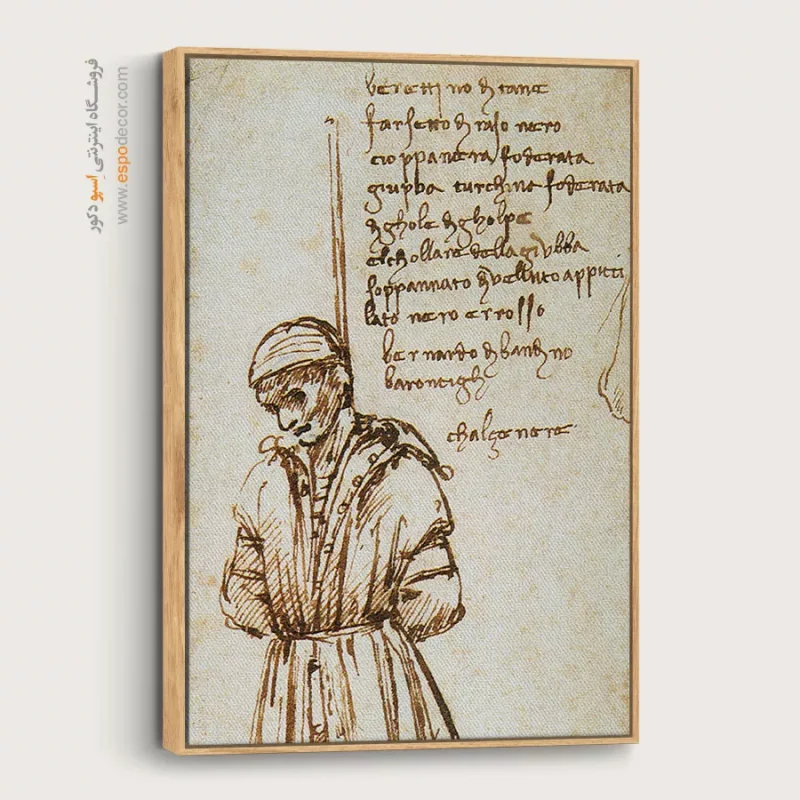 فروشگاه اینترنتیِ اسپو دکور
www.espodecor.com
berettino di tane
farsetto di raso nero
cioppa nera foderata
giubba turchina foderata
di ghole di gholpe
el chollare della giubba
soppannato di velluto appicci
lato nero e rosso
bernardo di bandino
barontigli
chalze nere